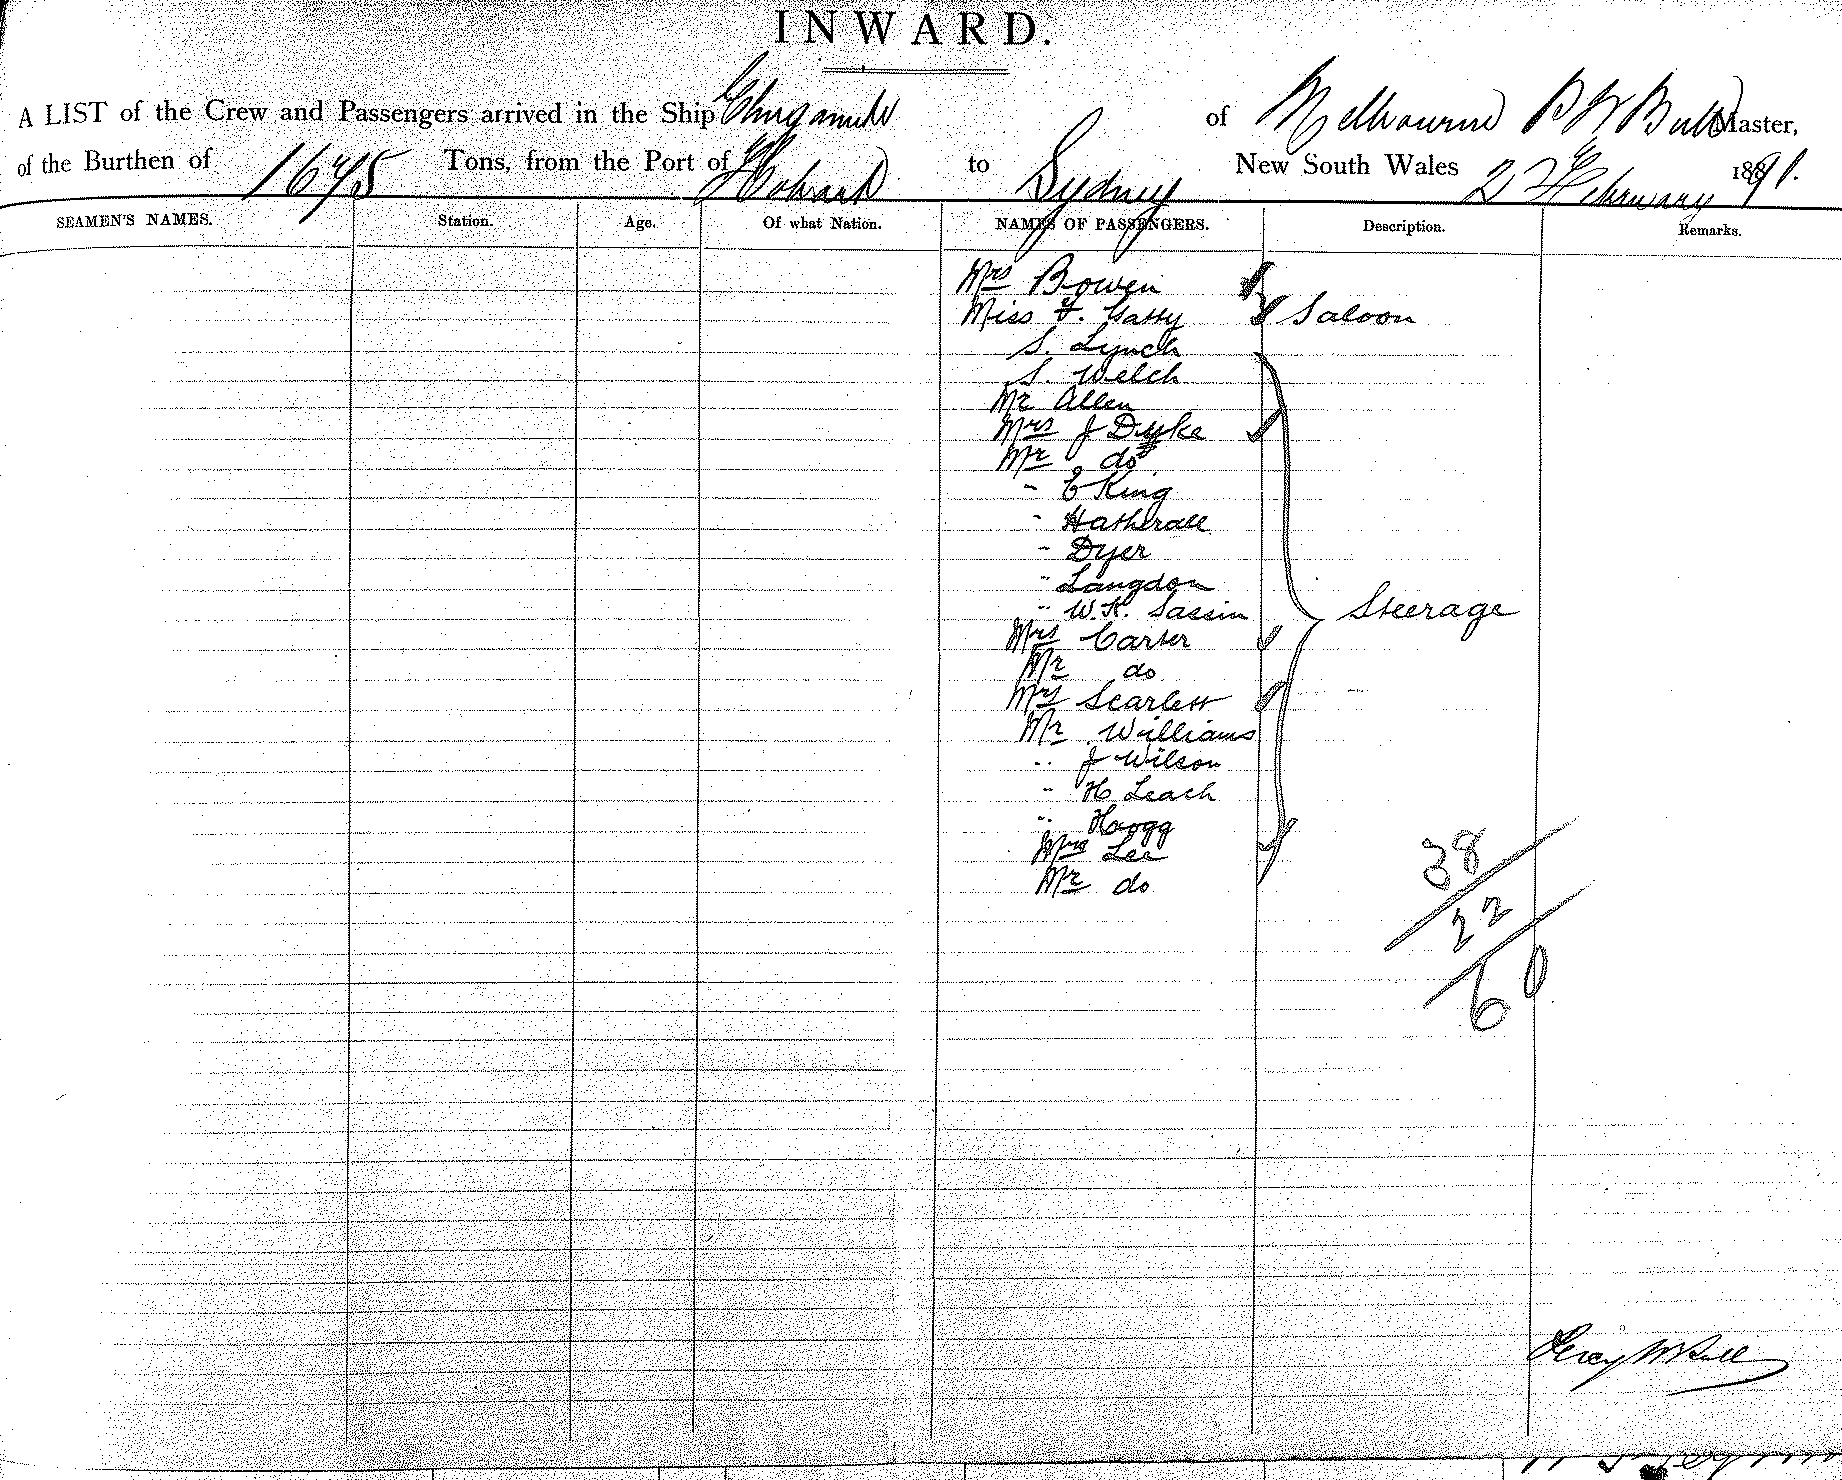 INWARD.
A LIST of the Crew and Passengers arrived in the Ship of Melbourne P W Bull Master,
of the Burthen of 1645 Tons, from the Port of Hobart to Sydney New South Wales 2 February 1891.
SEAMEN'S NAMES. Station. Age. Of what Nation. NAMES OF PASSENGERS. Description. Remarks.
Mrs Bowen
Miss F. Gatty Saloon
S. Lynch
S. Welch
Mr Allen
Mrs J Dyke
Mr do
" E King
" Hatherall
" Dyer
" Langdon
" W.K. Sassin Steerage
Mrs Carter
Mr do
Mrs Scarlett
Mr Williams
" J Wilson
" H Leach
" Hogg
Mrs Lee
Mr do
38
22
60
Percy W Bull